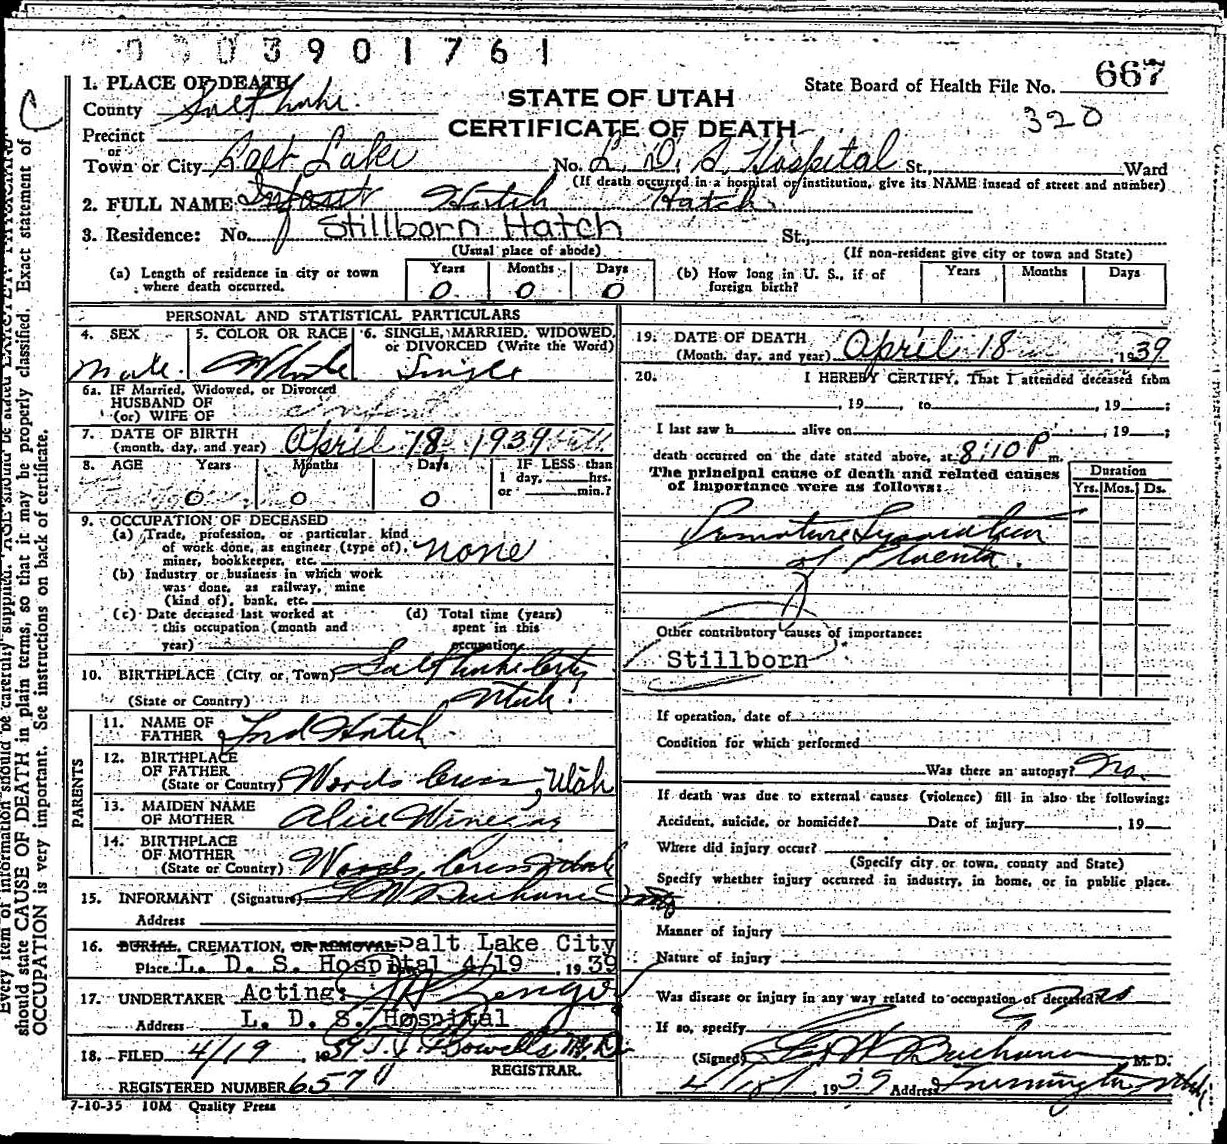 0 0 3 9 0 1 7 6 1
C
1. PLACE OF DEATH
County Salt Lake.
STATE OF UTAH
CERTIFICATE OF DEATH
State Board of Health File No. 667
320
Precinct
or
Town or City Salt Lake No. L. D. S. Hospital St., Ward
(If death occurred in a hospital or institution, give its NAME insead of street and number)
2. FULL NAME Infant Hatch Hatch
3. Residence: No. Stillborn Hatch St.,
(Usual place of abode) (If non-resident give city or town and State)
(a) Length of residence in city or town where death occurred. Years 0 Months 0 Days 0
(b) How long in U. S., if of foreign birth? Years Months Days
PERSONAL AND STATISTICAL PARTICULARS
4. SEX 5. COLOR OR RACE 6. SINGLE, MARRIED, WIDOWED, or DIVORCED (Write the Word)
Male. White Single
6a. IF Married, Widowed, or Divorced
HUSBAND OF
(or) WIFE OF Infant
7. DATE OF BIRTH
(month, day, and year) April 18 1939
8. AGE Years Months Days IF LESS than
1 day, hrs.
or min.?
0 0 0
9. OCCUPATION OF DECEASED
(a) Trade, profession, or particular kind
of work done, as engineer (type of),
miner, bookkeeper, etc. none
(b) Industry or business in which work
was done, as railway, mine
(kind of), bank, etc.
(c) Date deceased last worked at
this occupation (month and
year)
(d) Total time (years)
spent in this
occupation
10. BIRTHPLACE (City or Town) Salt Lake City
(State or Country) Utah.
PARENTS
11. NAME OF
FATHER Hatch
12. BIRTHPLACE
OF FATHER
(State or Country) Woods Cross, Utah
13. MAIDEN NAME
OF MOTHER Alice Winegar
14. BIRTHPLACE
OF MOTHER
(State or Country) Woods Cross Utah
15. INFORMANT (Signature) Buchanan
Address
16. BURIAL, CREMATION, OR REMOVAL Salt Lake City
Place L. D. S. Hospital 4/19 , 1939
17. UNDERTAKER Acting:
Address L. D. S. Hospital
18. FILED 4/19 , 1939 Howells M. D.
REGISTRAR.
REGISTERED NUMBER 657
7-10-35 10M Quality Press
19. DATE OF DEATH
(Month, day, and year) April 18 , 1939
20. I HEREBY CERTIFY, That I attended deceased from
, 19 , to , 19 ;
I last saw h alive on , 19 ;
death occurred on the date stated above, at 8:10 P m.
The principal cause of death and related causes
of importance were as follows:
Duration
Yrs. Mos. Ds.
Premature Separation
of Placenta.
Other contributory causes of importance:
Stillborn
If operation, date of
Condition for which performed
Was there an autopsy? No.
If death was due to external causes (violence) fill in also the following:
Accident, suicide, or homicide? Date of injury , 19
Where did injury occur?
(Specify city or town, county and State)
Specify whether injury occurred in industry, in home, or in public place.
Manner of injury
Nature of injury
Was disease or injury in any way related to occupation of deceased? no
If so, specify
(Signed) W Buchanan , M. D.
4/18/ , 1939 Address Farmington Utah
should state CAUSE OF DEATH in plain terms, so that it may be properly classified. Exact statement of
OCCUPATION is very important. See instructions on back of certificate.